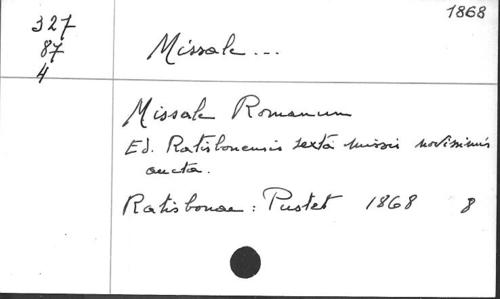 1868
327
87
4
Missale...
Missale Romanum
Ed. Ratisbonensis sexta missis novissimis
aucta.
Ratisbonae : Pustet 1868 8